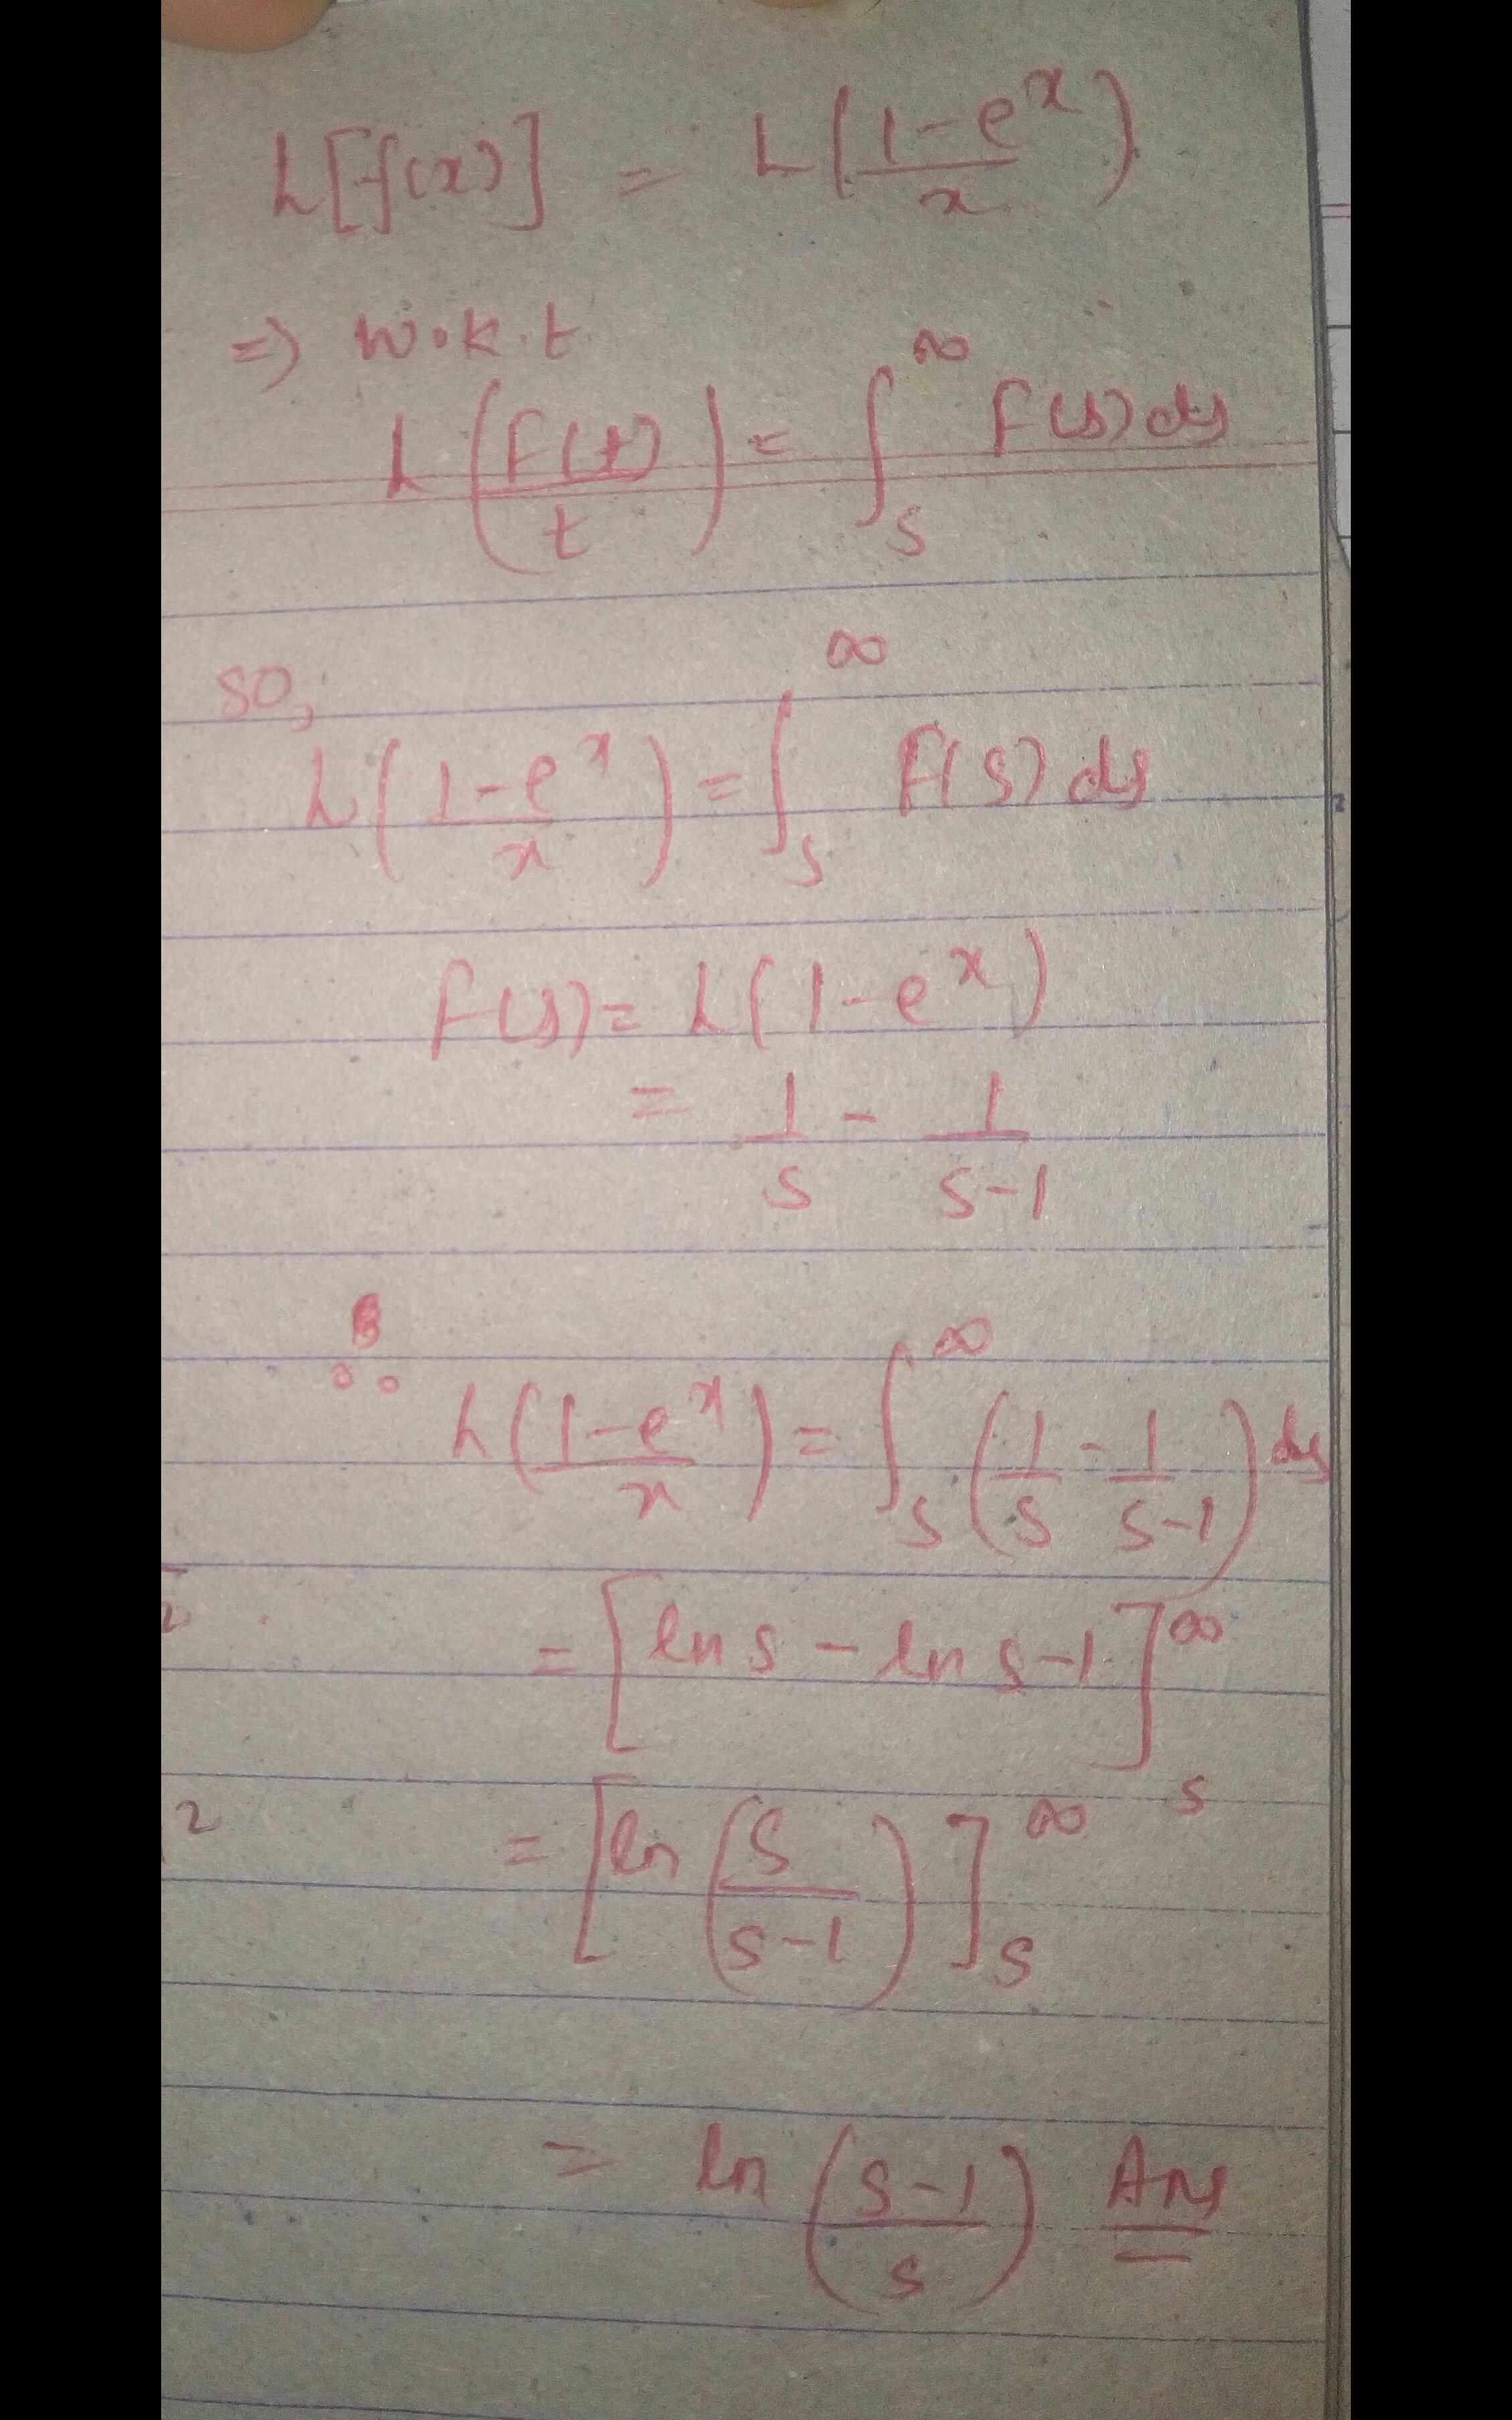 L[f(x)] = L(1-e^x / x)
=> W.K.t
L(F(t) / t) = ∫_s^∞ F(s) ds
so,
L(1-e^x / x) = ∫_s^∞ F(s) ds
F(s) = L(1-e^x)
= 1/s - 1/s-1
∴ L(1-e^x / x) = ∫_s^∞ (1/s - 1/s-1) ds
= [ln s - ln s-1]_s^∞
2
= [ln (s / s-1)]_s^∞
= ln (s-1 / s) Ans